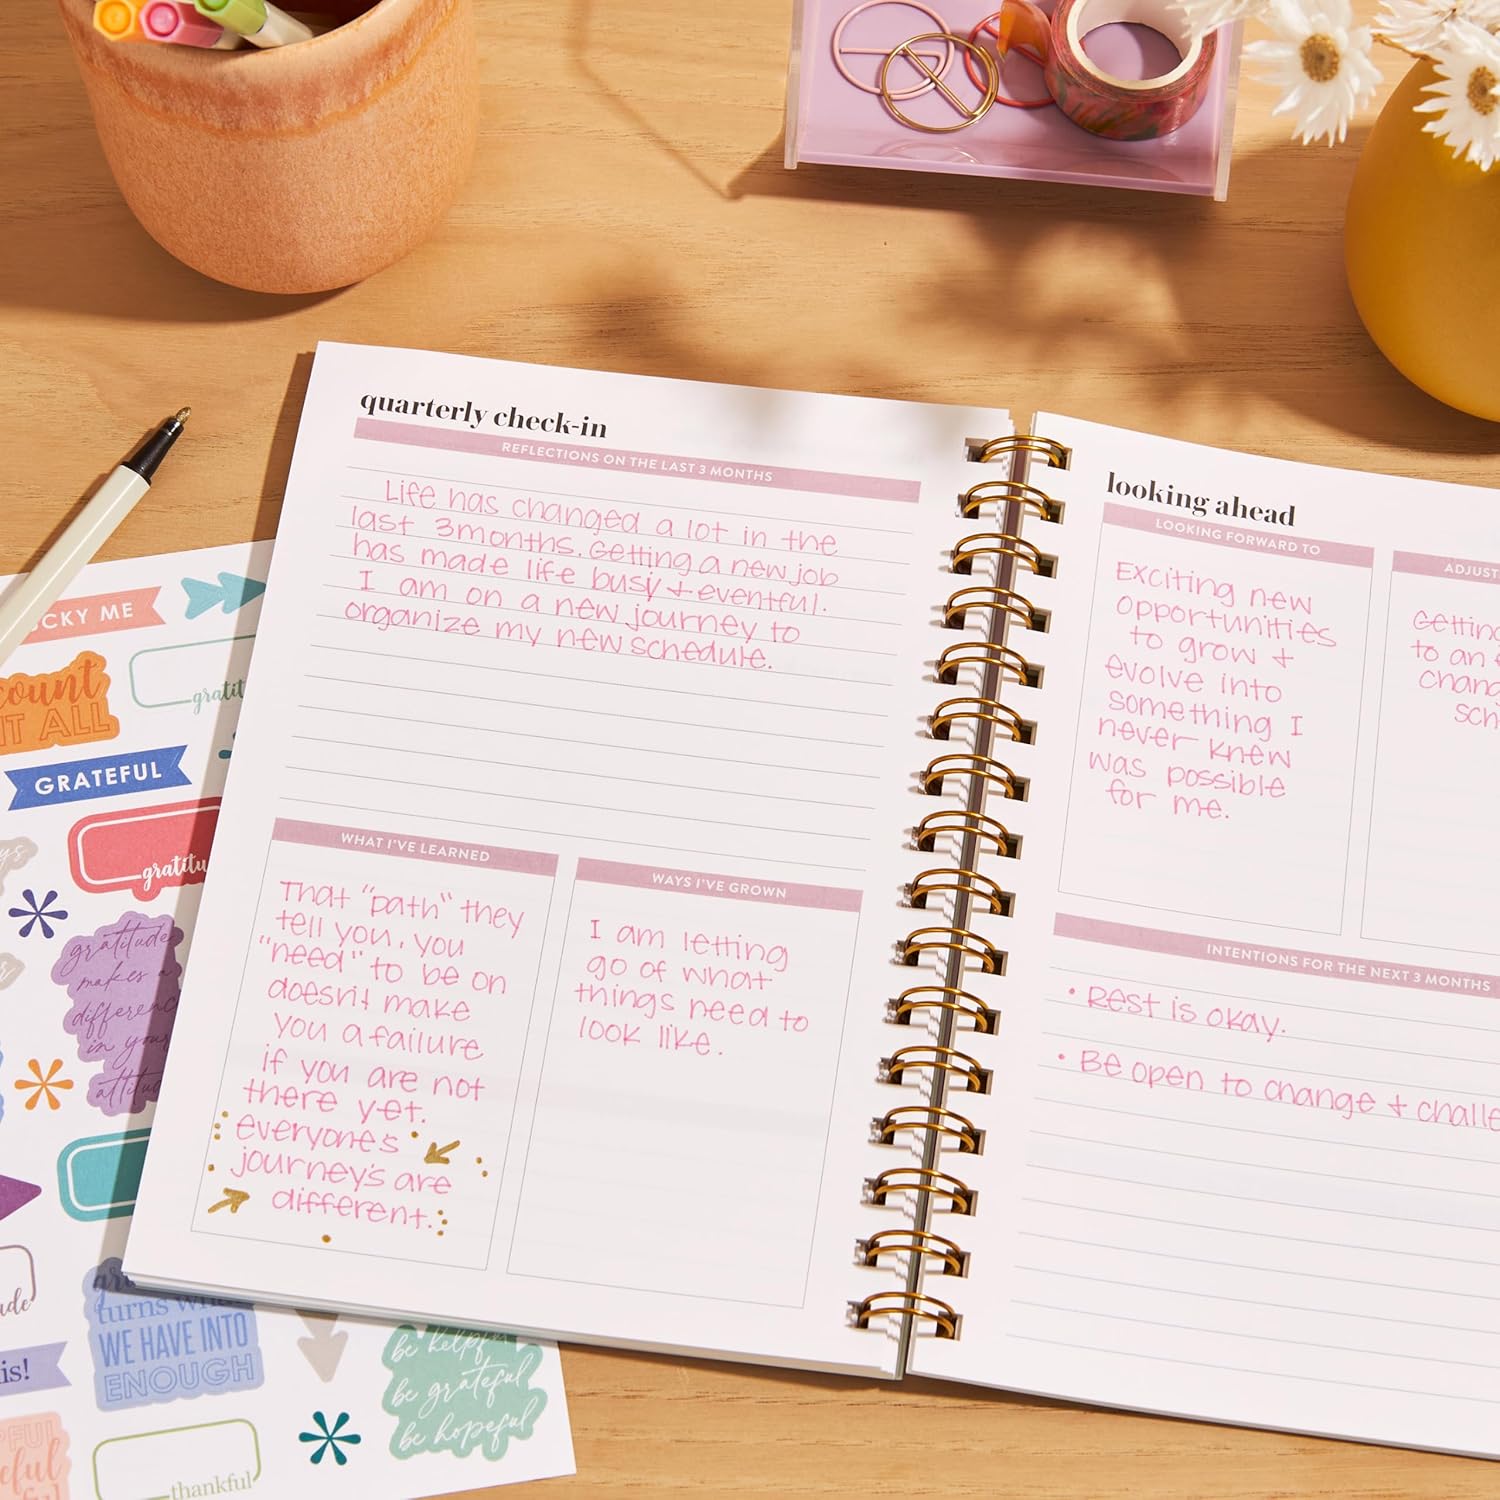 quarterly check-in
REFLECTIONS ON THE LAST 3 MONTHS
Life has changed a lot in the
last 3 months. Getting a new job
has made life busy + eventful.
I am on a new journey to
organize my new schedule.
WHAT I'VE LEARNED
That "path" they
tell you, you
"need" to be on
doesn't make
you a failure
if you are not
there yet.
everyone's
journey's are
different.
WAYS I'VE GROWN
I am letting
go of what
things need to
look like.
looking ahead
LOOKING FORWARD TO
Exciting new
opportunities
to grow +
evolve into
something I
never knew
was possible
for me.
ADJUST
Getting
to an
chang
sch
INTENTIONS FOR THE NEXT 3 MONTHS
• Rest is okay.
• Be open to change + challe
CKY ME
count
IT ALL
gratit
GRATEFUL
gratitu
gratitude
makes a
difference
in your
attitu
ude
turns wh
WE HAVE INTO
ENOUGH
is!
be helpful
be grateful
be hopeful
thankful